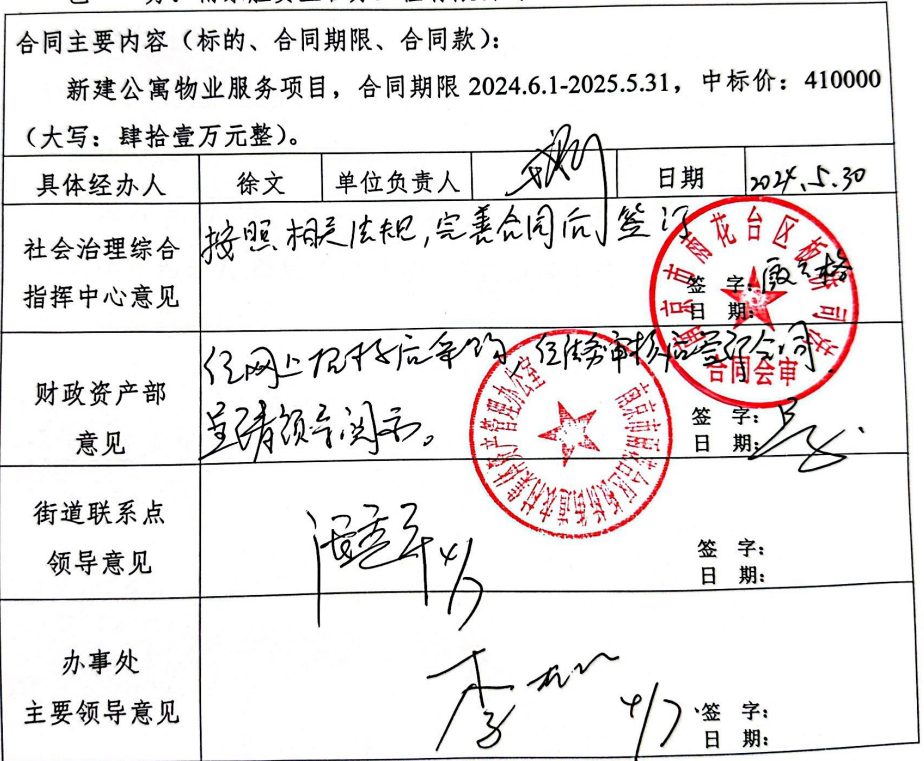 合同主要内容（标的、合同期限、合同款）：
新建公寓物业服务项目，合同期限 2024.6.1-2025.5.31，中标价：410000
（大写：肆拾壹万元整）。
具体经办人 徐文 单位负责人 日期 2024.5.30
社会治理综合
指挥中心意见
按照相关法规，完善合同后签订
签 字：
日 期：
合同会审
财政资产部
意见
经网上招标后签约，经法务审核后签订合同，
呈请领导阅示。
签 字：
日 期：
街道联系点
领导意见
4/7
签 字：
日 期：
办事处
主要领导意见
4/7
签 字：
日 期：